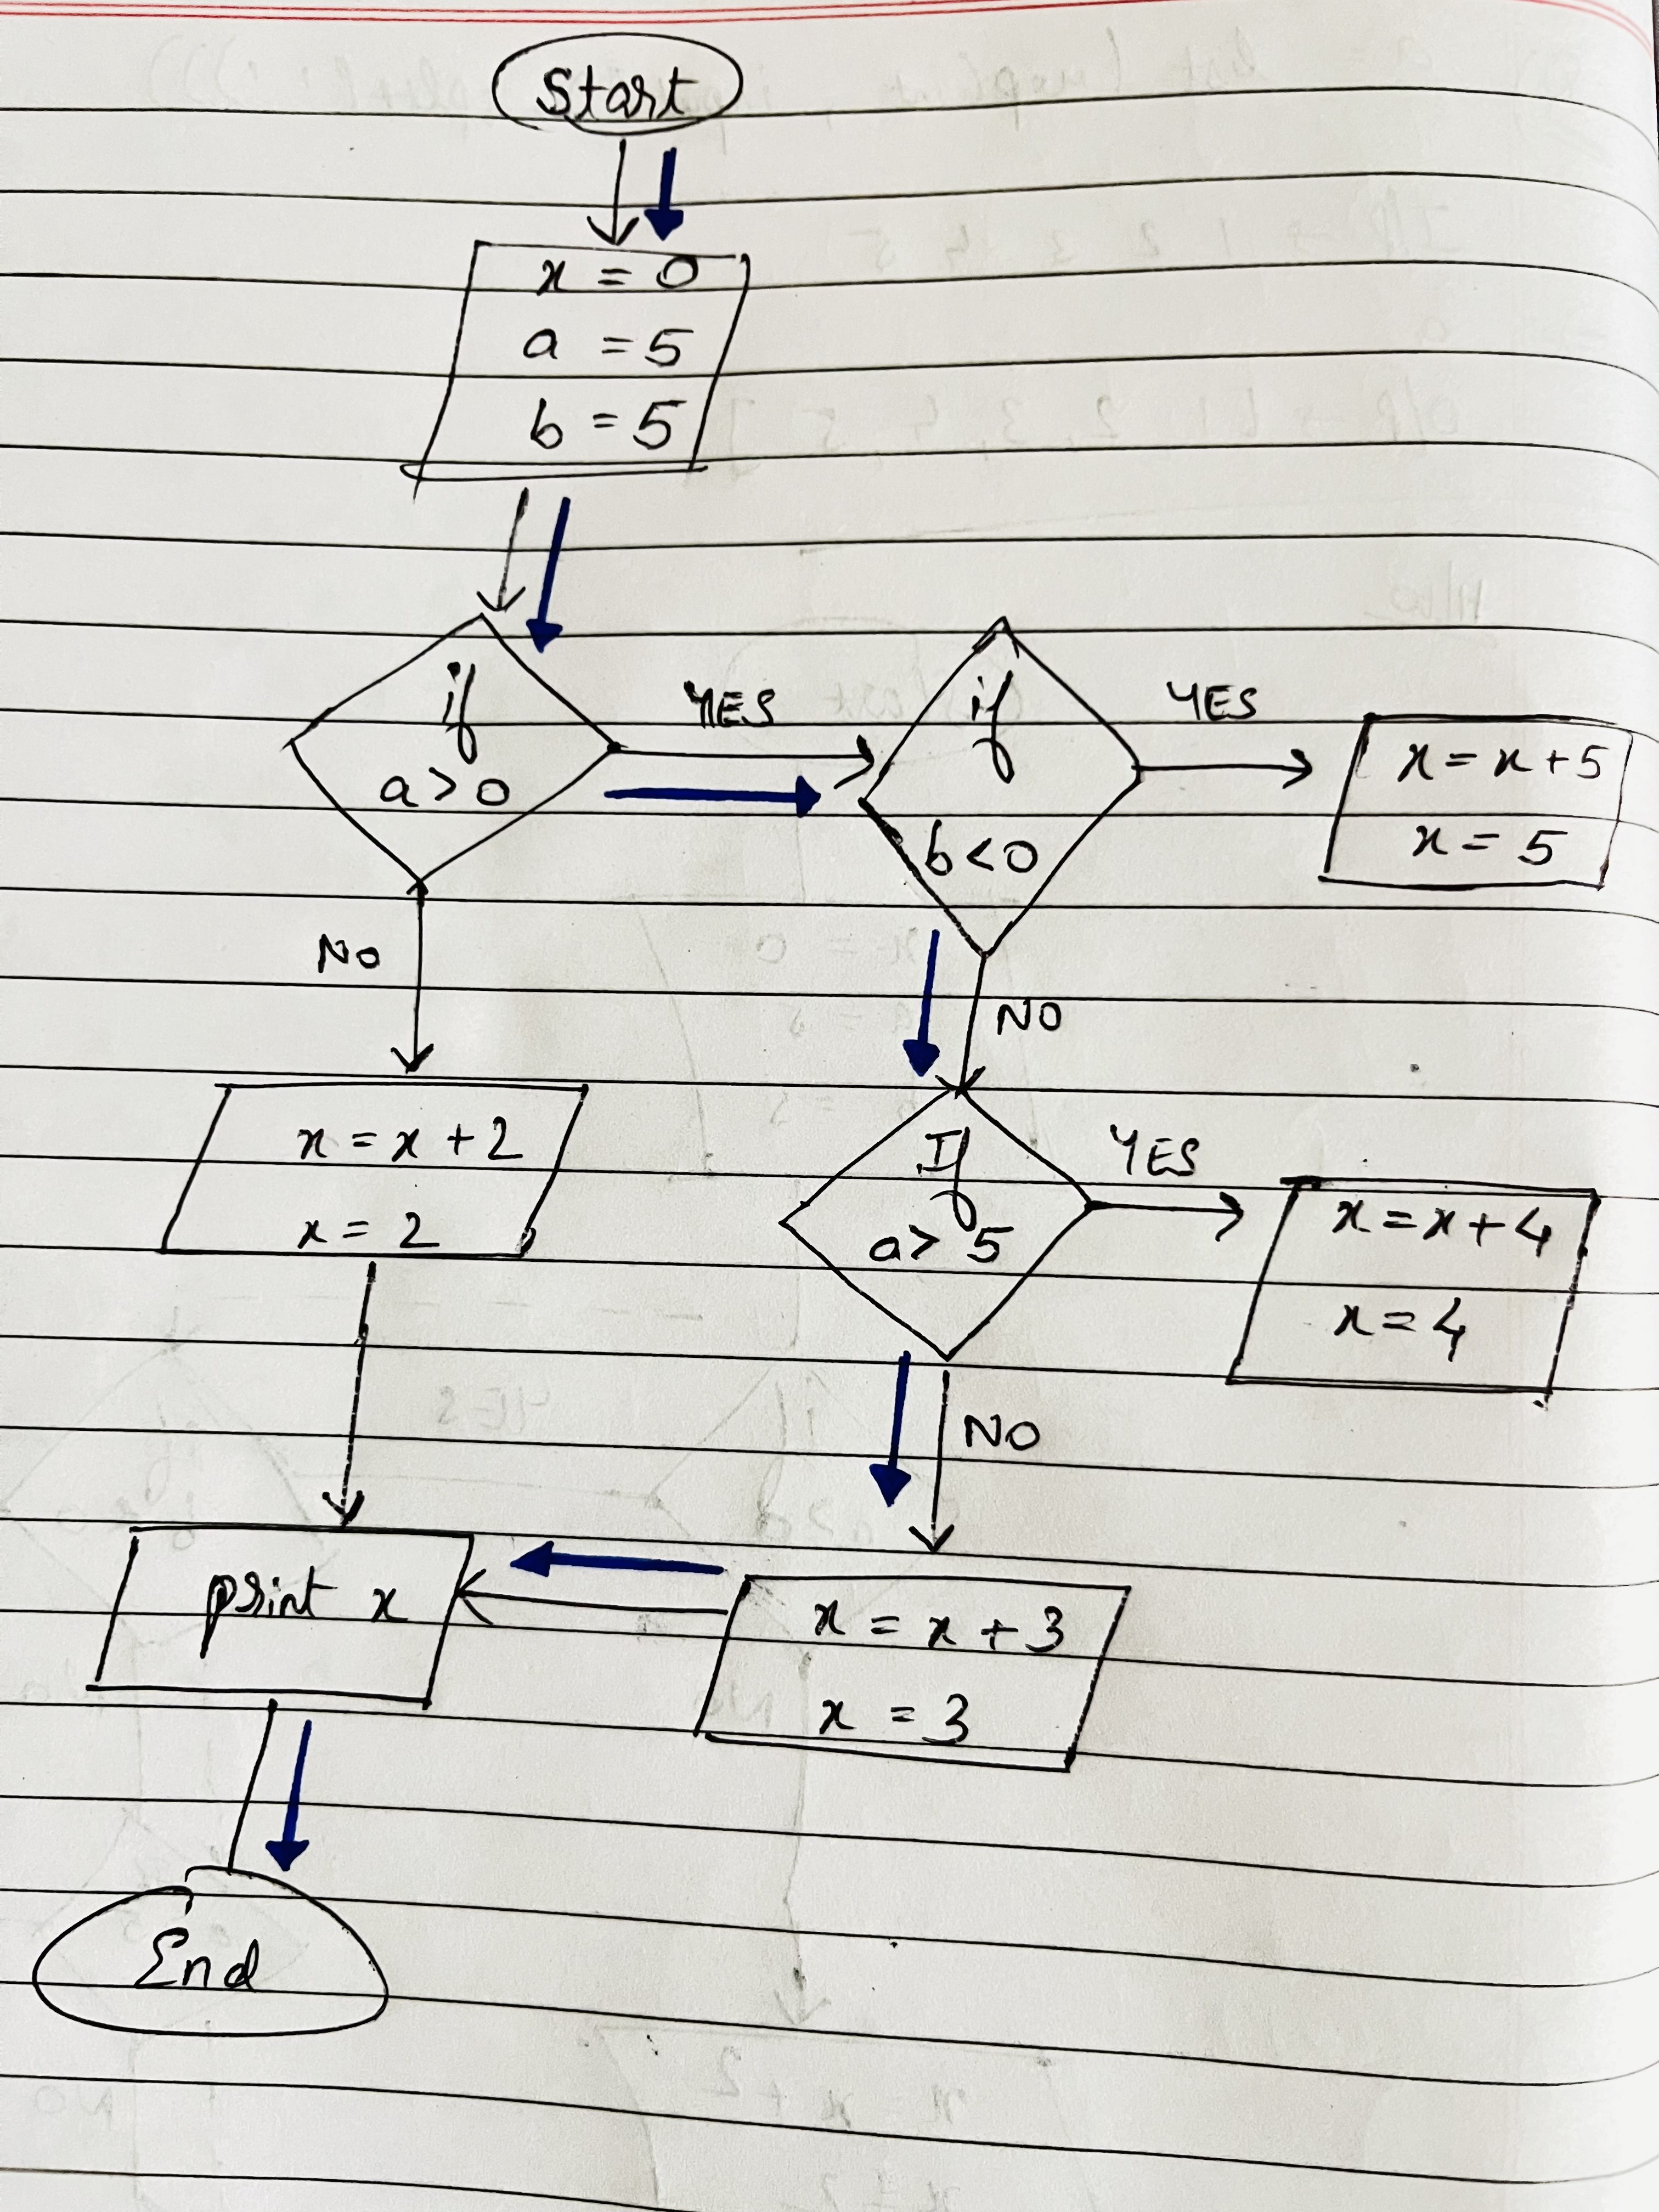 Start
x = 0
a = 5
b = 5
if
a > 0
YES
if
b < 0
YES
x = x + 5
x = 5
NO
NO
x = x + 2
x = 2
If
a > 5
YES
x = x + 4
x = 4
NO
print x
x = x + 3
x = 3
End